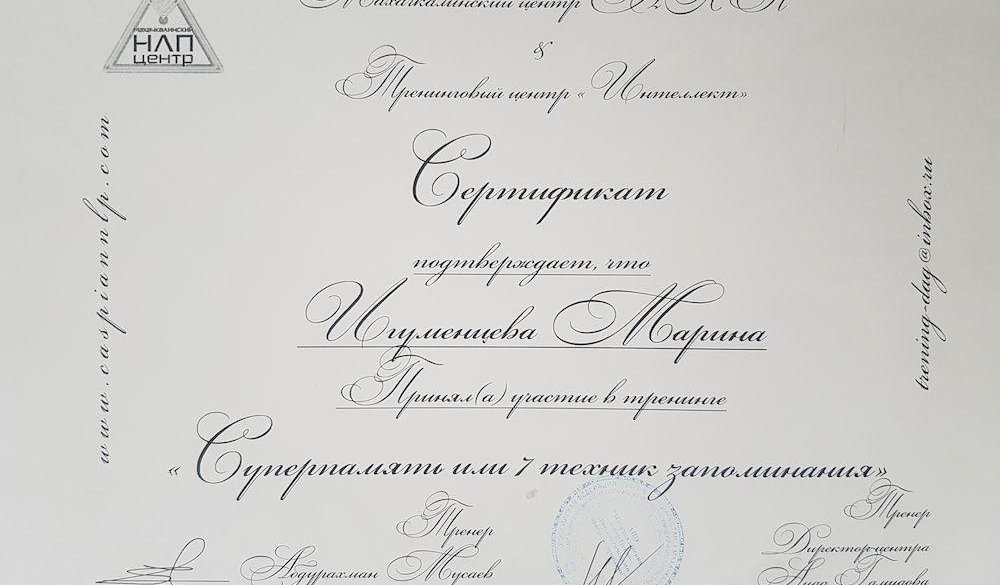 Махачкалинский центр
МАХАЧКАЛИНСКИЙ
НЛП
центр
&
Тренинговый центр «Интеллект»
Сертификат
подтверждает, что
Игуменцева Марина
Принял(а) участие в тренинге
«Суперпамять или 7 техник запоминания»
Тренер
Абдурахман Мусаев
Тренер
Директор центра
www.caspiannlp.com
trening-dag@inbox.ru